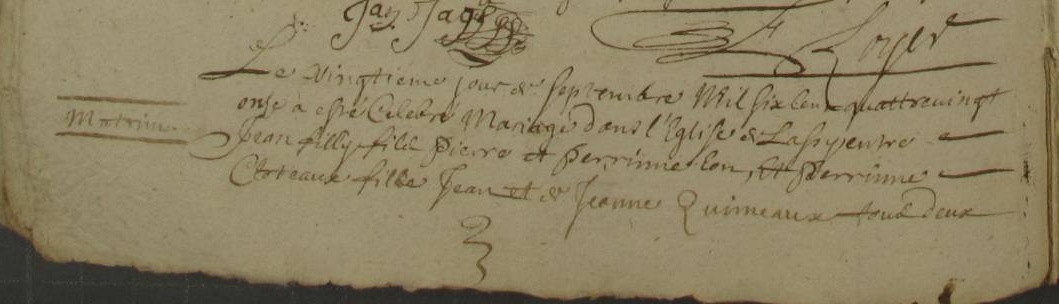 Jay Jays
F Loyer
Le vingtieme jour de Septembre Mil six Cent quattrevingt
Matrim
onse a esté Celebré Mariage dans l'Eglise de
Jean filly fils Pierre et Perrinne lou, Et Perrinne
Cloteaux fille Jean et de Jeanne Quimeaux tous deux